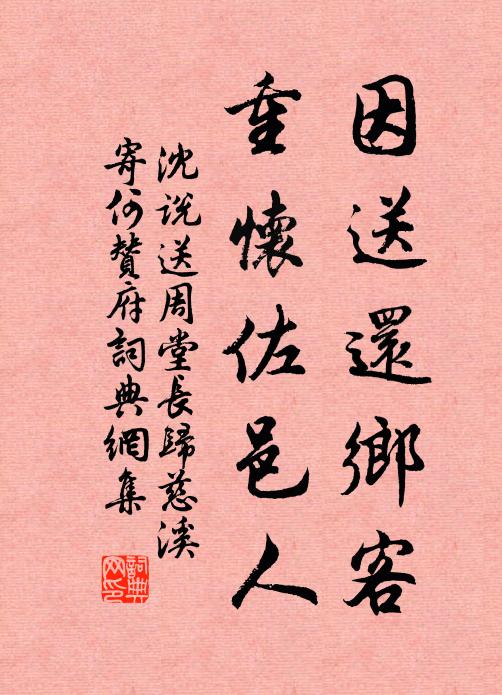 因送還鄉客
重懷佐邑人
沈説送周堂長歸慈溪
寄何贊府詞典網集
詞典网印